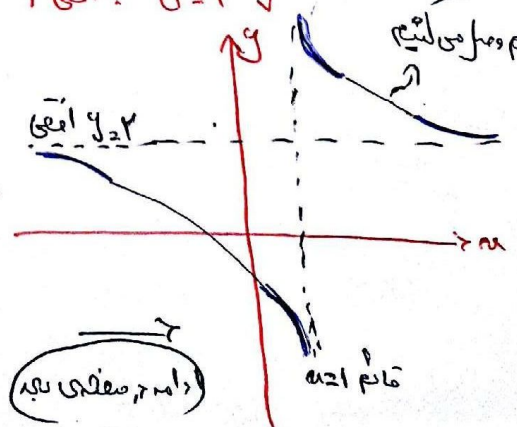 y
هم وصل می‌کنیم
افقی y=2
x
قائم x=1
ادامه در صفحه‌ی بعد